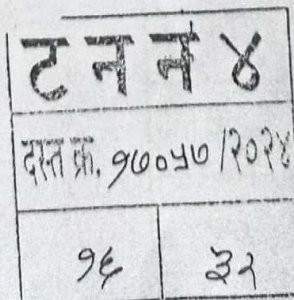 ट न न ४
दस्त क्र. १७०५७ /२०२४
१६ ३२